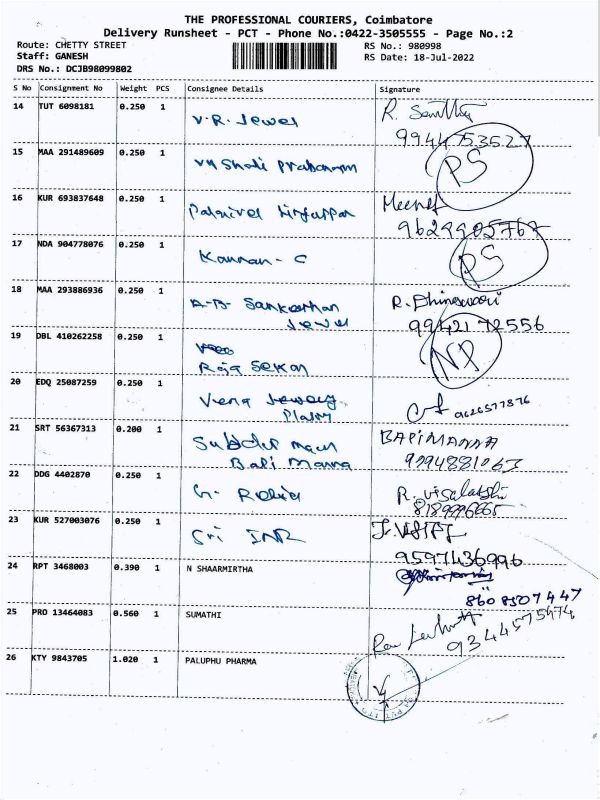 THE PROFESSIONAL COURIERS, Coimbatore
Delivery Runsheet - PCT - Phone No.:0422-3505555 - Page No.:2
Route: CHETTY STREET RS No.: 980998
Staff: GANESH RS Date: 18-Jul-2022
DRS No.: DCJB98099802
S No Consignment No Weight PCS Consignee Details Signature
14 TUT 6098181 0.250 1 V.R. Jewel R.
9944753527
15 MAA 291489609 0.250 1 PS
16 KUR 693837648 0.250 1 Meena
9629905767
17 NDA 904778076 0.250 1 Kannan - C PS
18 MAA 293886936 0.250 1 A.B. Sankarthan R. Dhineswari
Jewel 9942172556
19 DBL 410262258 0.250 1 NP
Raja Sekar
20 EDQ 25087259 0.250 1 9626577876
21 SRT 56367313 0.200 1 BAPIMANNA
Bapi Manna 9394881063
22 DDG 4402870 0.250 1 G. R. Visalatshi
8189996665
23 KUR 527003076 0.250 1 Sri INR
9597436996
24 RPT 3468003 0.390 1 N SHAARMIRTHA
8608507447
25 PRO 13464083 0.560 1 SUMATHI
9344575974
26 KTY 9843705 1.020 1 PALUPHU PHARMA